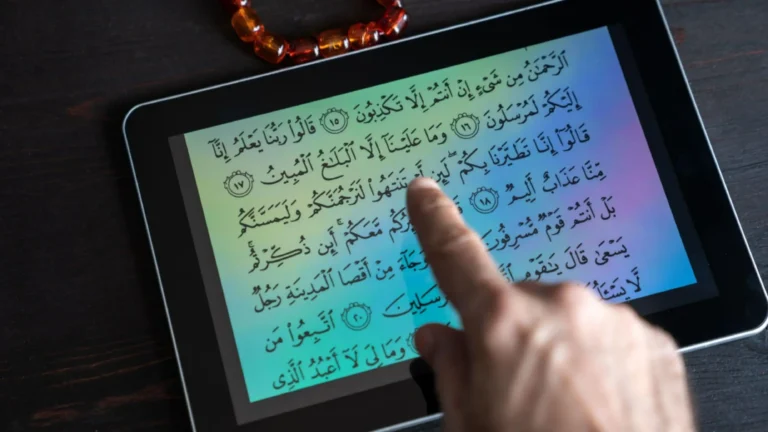 ٱلرَّحْمَٰنُ مِن شَىْءٍ إِنْ أَنتُمْ إِلَّا تَكْذِبُونَ ١٥ قَالُوا۟ رَبُّنَا يَعْلَمُ إِنَّآ
إِلَيْكُمْ لَمُرْسَلُونَ ١٦ وَمَا عَلَيْنَآ إِلَّا ٱلْبَلَٰغُ ٱلْمُبِينُ ١٧
قَالُوٓا۟ إِنَّا تَطَيَّرْنَا بِكُمْ ۖ لَئِن تَنتَهُوا۟ لَنَرْجُمَنَّكُمْ وَلَيَمَسَّنَّكُم
مِّنَّا عَذَابٌ أَلِيمٌ ١٨ مَّعَكُمْ ۚ أَئِن ذُكِّرْتُم ۚ
بَلْ أَنتُمْ قَوْمٌ مُّسْرِفُونَ جَآءَ مِنْ أَقْصَا ٱلْمَدِينَةِ رَجُلٌ
يَسْعَىٰ قَالَ يَٰقَوْمِ ٢٠ ٱتَّبِعُوا۟ مَن
لَّا وَمَا لِىَ لَآ أَعْبُدُ ٱلَّذِى